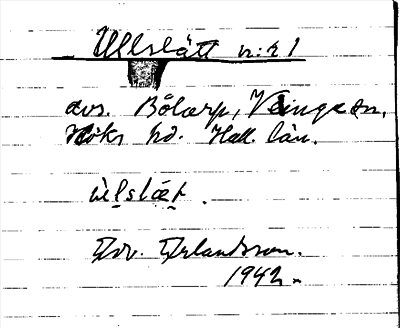 Ullslätt nr 1
avs. Bölarp, Veinge sn,
Höks hd. Hall. län.
ùlslæt.
Edv. Erlandsson.
1942.